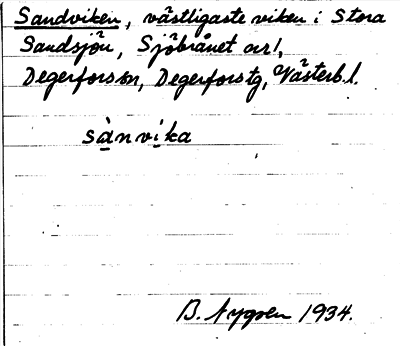 Sandviken, västligaste viken i Stora
Sandsjön, Sjöbrånet ar!,
Degerfors sn, Degerfors tg, Västerb.l.
sànvika
B. Nygren 1934.